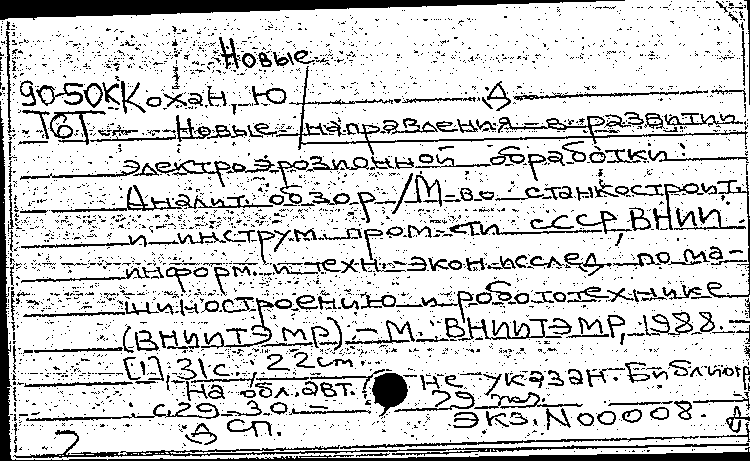 Новые
90-50К Кохан, Ю
161 Новые направления в развитии
электроэрозионной обработки:
Аналит. обзор / М-во станкостроит.
и инструм. пром-сти СССР, ВНИИ
информ. и техн.-экон. исслед. по ма-
шиностроению и робототехнике
(ВНИИТЭМР). - М.: ВНИИТЭМР, 1988. -
[1], 31 с., 22 см.
На обл. авт. не указан. Библиогр
: с. 29-30. - 29 наз.
Д СП. ЭКЗ. N 00008.